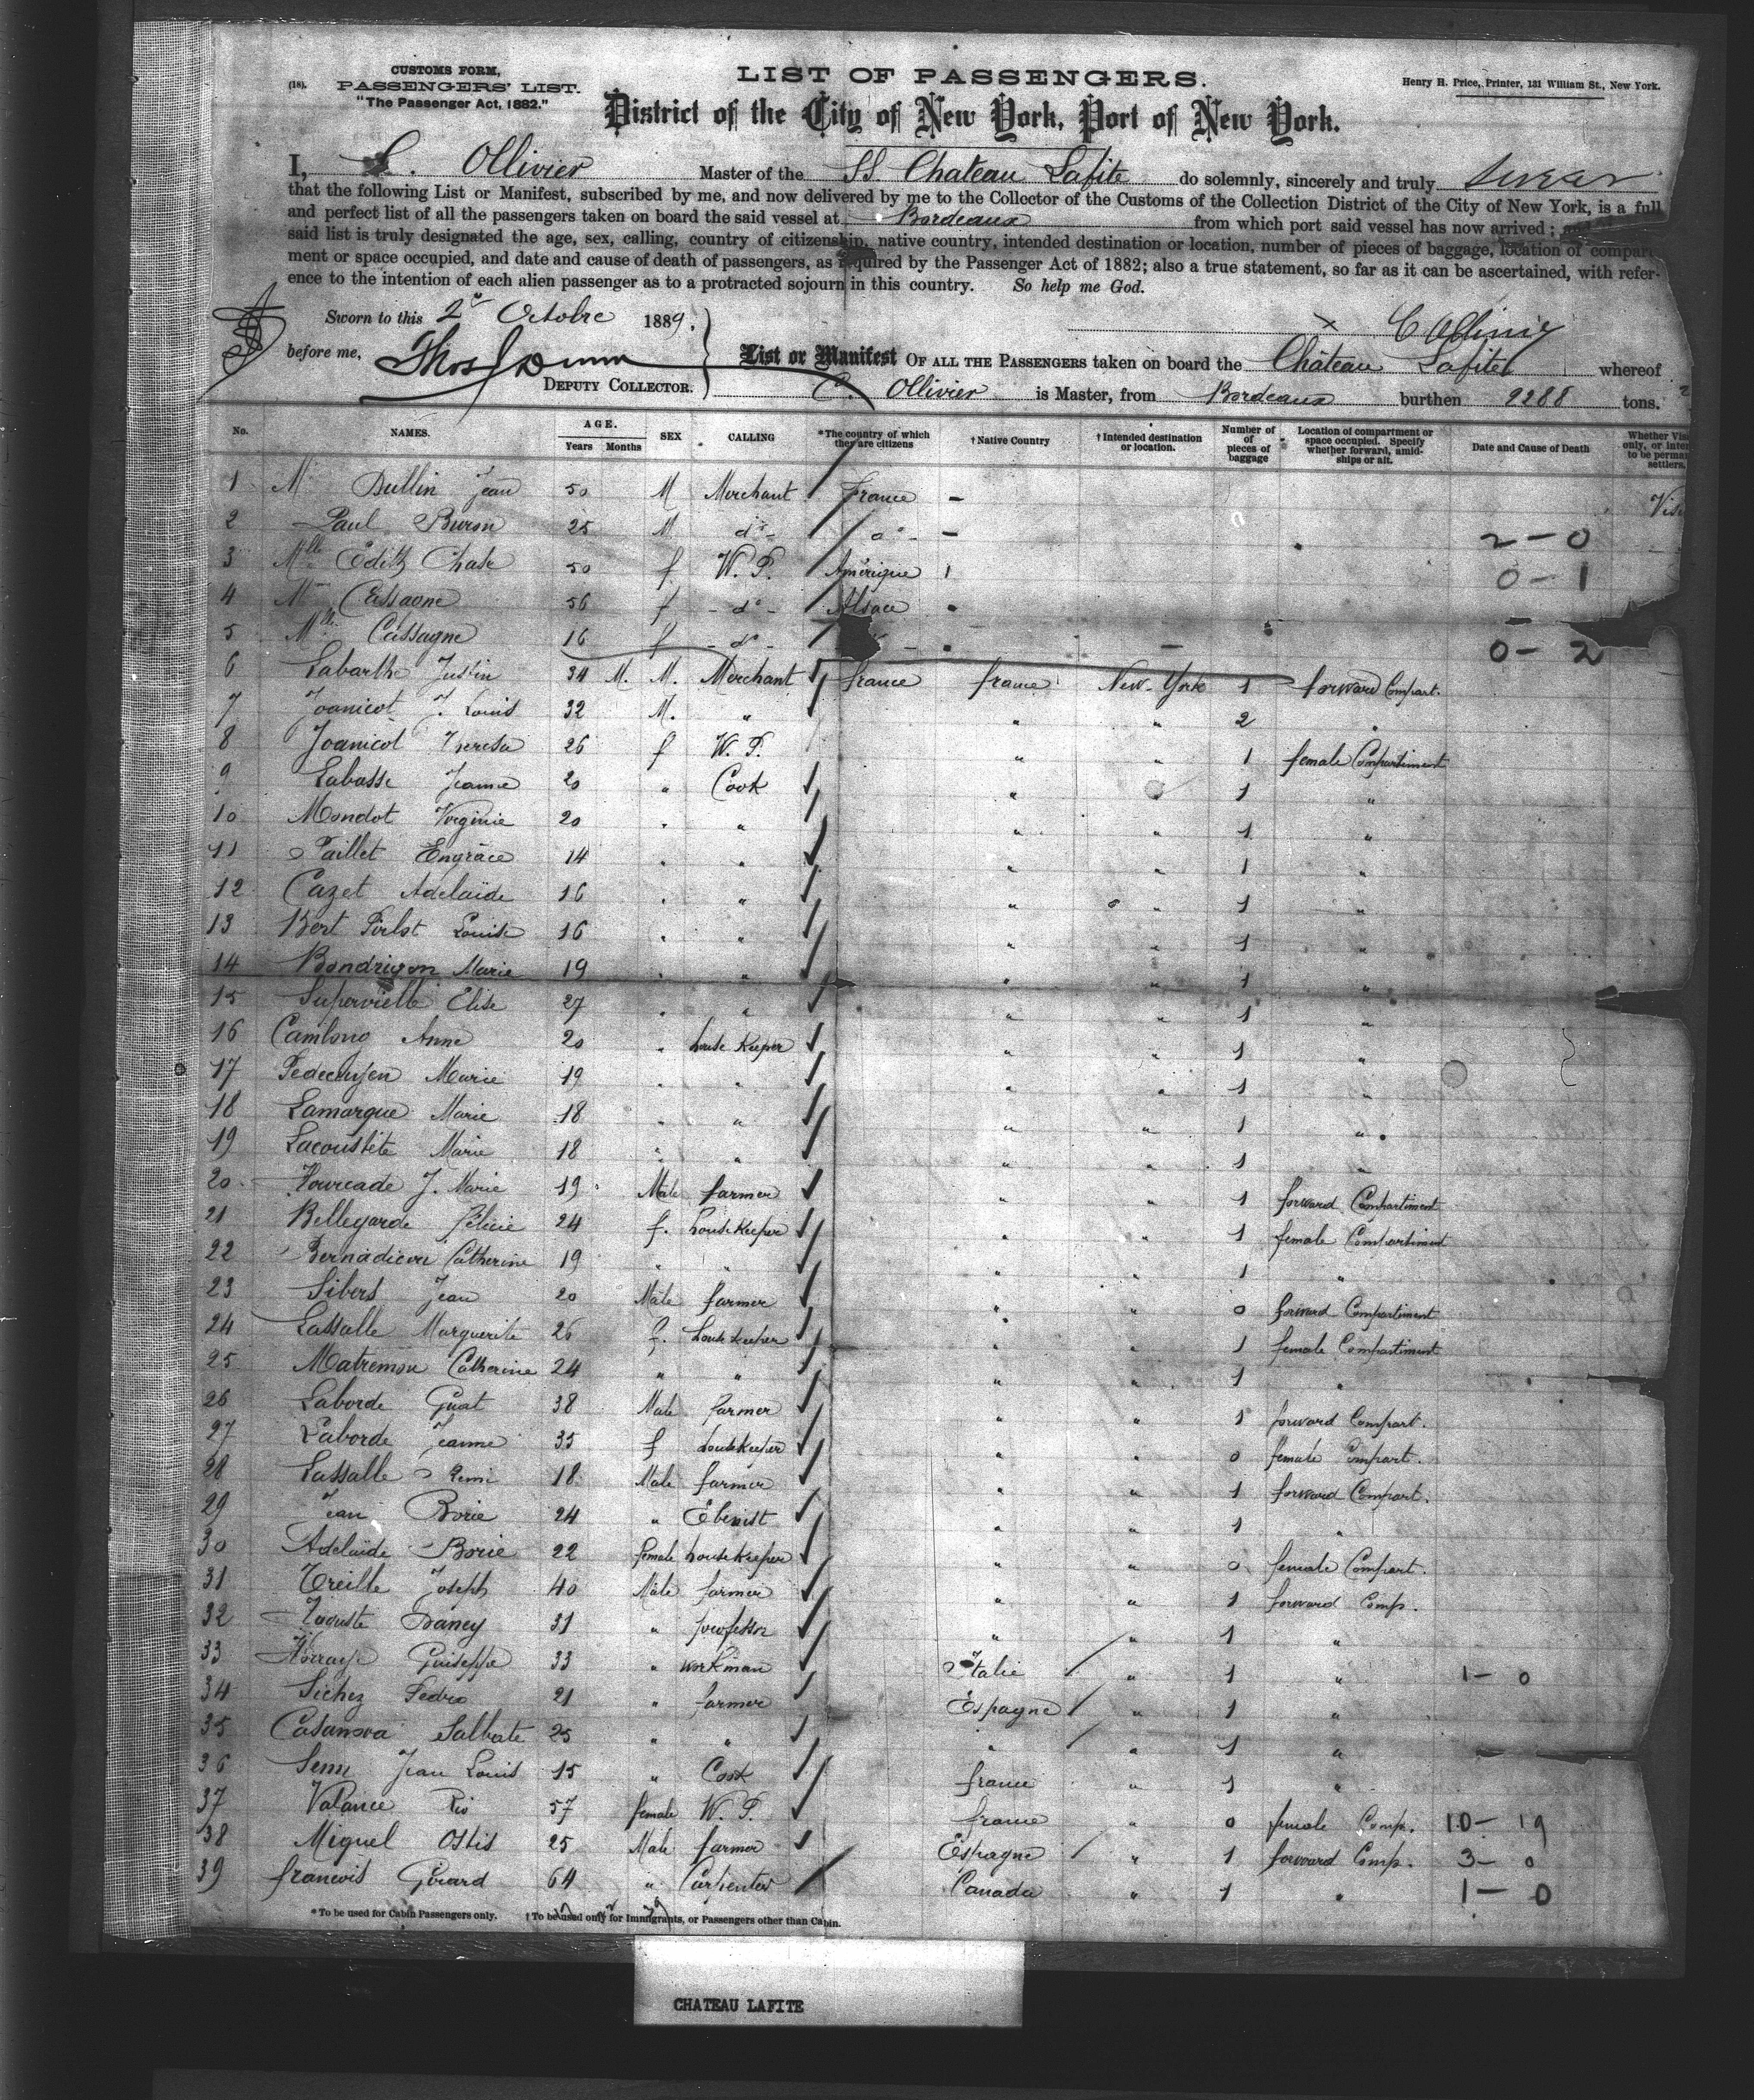 CUSTOMS FORM,
(18). PASSENGERS' LIST.
"The Passenger Act, 1882."
LIST OF PASSENGERS.
Henry H. Price, Printer, 131 William St., New York.
District of the City of New York, Port of New York.
I, Ollivier Master of the SS Chateau Lafite do solemnly, sincerely and truly swear
that the following List or Manifest, subscribed by me, and now delivered by me to the Collector of the Customs of the Collection District of the City of New York, is a full
and perfect list of all the passengers taken on board the said vessel at Bordeaux from which port said vessel has now arrived; and
said list is truly designated the age, sex, calling, country of citizenship, native country, intended destination or location, number of pieces of baggage, location of compart
ment or space occupied, and date and cause of death of passengers, as required by the Passenger Act of 1882; also a true statement, so far as it can be ascertained, with refer-
ence to the intention of each alien passenger as to a protracted sojourn in this country. So help me God.
Sworn to this 2 Octobre 1889.
before me, Thos Dunn
DEPUTY COLLECTOR.
List or Manifest OF ALL THE PASSENGERS taken on board the Château Lafite whereof
C. Ollivier is Master, from Bordeaux burthen 2288 tons.
No. NAMES. AGE. Years Months SEX CALLING *The country of which they are citizens †Native Country †Intended destination or location. Number of pieces of baggage Location of compartment or space occupied. Specify whether forward, amid-ships or aft. Date and Cause of Death Whether Vis only, or inten to be perman settlers.
1 Mr Dullin Jean 50 M Merchant France - Visi
2 Paul Buron 25 M do - do - - 2-0
3 Mlle Edith Chase 50 f W. P. Amérique 1 0-1
4 Cassagne 56 f - do - Alsace
5 Mlle Cassagne 16 f - do - 0-2
6 Labarthe Justin 34 M. M. Merchant france france New-York 1 forward Compart.
7 Joanicot J. Louis 32 M. " " " 2 "
8 Joanicot Theresa 26 f W. P. " " 1 female Compartiment
9 Labasse Jeanne 20 " Cook " " 1 "
10 Mondot Virginie 20 " " " " 1 "
11 Paillet Engrâce 14 " " " " 1 "
12 Cazet Adelaïde 16 " " " " 1 "
13 Bert Louise 16 " " " " 1 "
14 Bondrigon Marie 19 " " " " 1 "
15 Supervielle Elise 27 " " " " 1 "
16 Camlong Anne 20 " house Keeper " " 1 "
17 Marie 19 " " " " 1 "
18 Lamarque Marie 18 " " " " 1 "
19 Lacoustète Marie 18 " " " " 1 "
20 Fourcade J. Marie 19 Male farmer " " 1 forward Compartiment
21 Bellegarde Félicie 24 f. houseKeeper " " 1 female Compartiment
22 Bernadicou Catherine 19 " " " " 1 "
23 Sibers Jean 20 Male farmer " " 0 forward Compartiment
24 Lassalle Marguerite 26 f. houseKeeper " " 1 female Compartiment
25 Matremon Catherine 24 " " " " 1 "
26 Laborde Guat 38 Male farmer " " 1 forward Compart.
27 Laborde Jeanne 35 f houseKeeper " " 0 female Compart.
28 Lassalle Remi 18 Male farmer " " 1 forward Compart.
29 Jean Borie 24 " Ebenist " " 1 "
30 Adelaïde Borie 22 female houseKeeper " " 0 female Compart.
31 Treille Joseph 40 Male farmer " " 1 forward Comp.
32 Daney 31 " professor " " 1 "
33 Guiseppe 33 " workman Italie " 1 " 1-0
34 Sichez Pedro 21 " farmer Espagne " 1 "
35 Casanova 25 " " " " 1 "
36 Jean Louis 15 " Cook france " 1 "
37 Valance 57 female W. P. france " 0 female Comp. 10-19
38 Miguel Ostis 25 Male farmer Espagne " 1 forward Comp. 3-0
39 francois Girard 64 " Carpenter Canada " 1 " 1-0
*To be used for Cabin Passengers only. †To be used only for Immigrants, or Passengers other than Cabin.
CHATEAU LAFITE